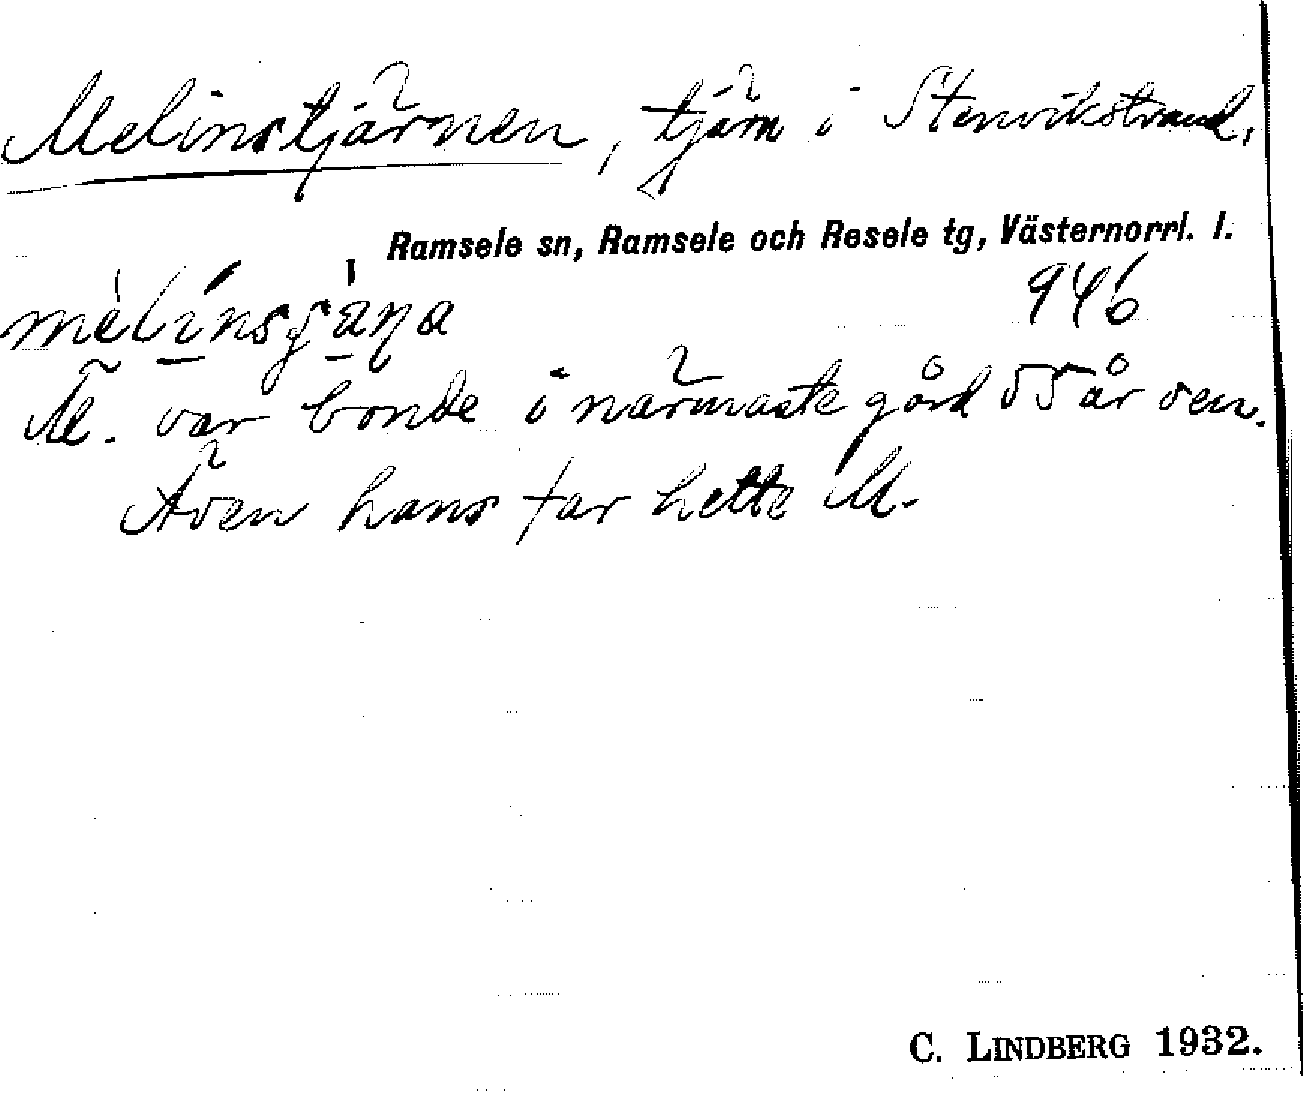 Melinstjärnen, tjärn i Stenvikstrand,
Ramsele sn, Ramsele och Resele tg, Västernorrl. l.
946
M. var bonde i närmaste gård 55 år sen.
Även hans far hette M.
C. LINDBERG 1932.